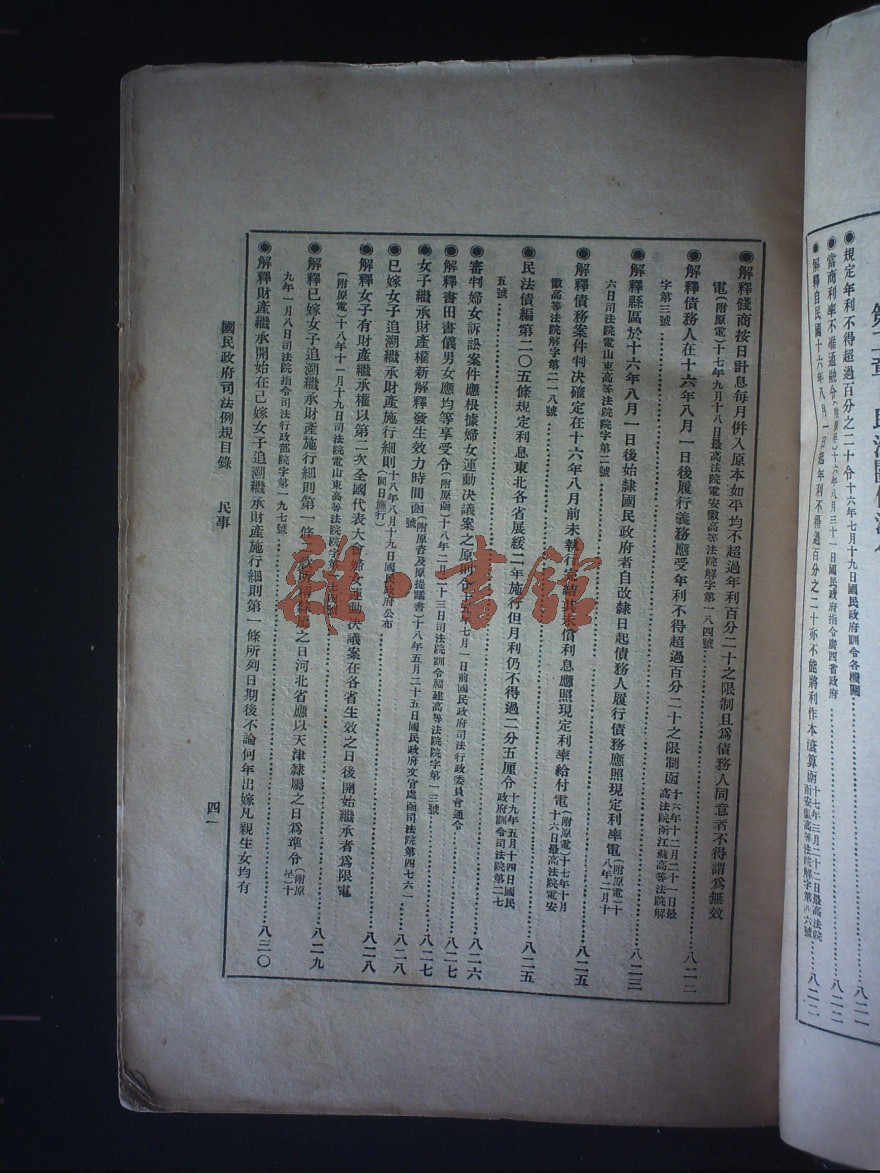 規定年利不得超過百分之二十令十六年七月十九日國民政府訓令各機關……八二一
當商利率不准通融令
解釋自民國十六年八月一日起年利不得過百分之二十亦不能將利作本滾算函
◉解釋錢商按日計息每月併入原本如平均不超過年利百分二十之限制且爲債務人同意者不得謂爲無效
電(附原電)十七年九月十八日最高法院電安徽高等法院解字第一八四號
◉解釋債務人在十六年八月一日後履行義務應受年利不得超過百分二十之限制函十六年十二月二十一日最高法院函江蘇高等法院解
字第三號……八二二
◉解釋縣區於十六年八月一日後始隸國民政府者自改隸日起債務人履行債務應照現定利率電(附原電)十八年二月十
六日司法院電山東高等法院院字第二號……八二三
◉解釋債務案件判決確定在十六年八月前未執行完結其未償利息應照現定利率給付電(附原電)十七年十月十六日最高法院電安
徽高等法院解字第二一八號……八二五
◉民法債編第二〇五條規定利息東北各省展緩二年施行但月利仍不得過二分五厘令十九年五月十四日國民政府訓令司法院第二七
五號……八二五
◉審判婦女訴訟案件應根據婦女運動決議案之原則令十五年七月一日前國民政府司法行政委員會通令……八二六
◉解釋書田書儀男女應均等享受令(附原函)十八年二月二十三日司法院訓令福建高等法院院字第一三號……八二七
◉女子繼承財產權新解釋發生效力時間函(附原咨及原提議書)十八年五月二十五日國民政府文官處函司法院第四七六一號……八二七
◉已嫁女子追溯繼承財產施行細則十八年八月十九日國民政府公布(同日施行)……八二八
◉解釋女子有財產繼承權以第二次全國代表大會婦女運動決議案在各省生效之日後開始繼承者爲限電
(附原電)十八年十一月十九日司法院電山東高等法院院字……八二八
◉解釋已嫁女子追溯繼承財產施行細則第一條二款所稱隸屬之日河北省應以天津隸屬之日爲準令(附原呈)十
九年一月八日司法院指令司法行政部院字第一九七號……八二九
◉解釋財產繼承開始在已嫁女子追溯繼承財產施行細則第一條所列日期後不論何年出嫁凡親生女均有……八三〇
國民政府司法例規目錄 民事
四一
雜·書館